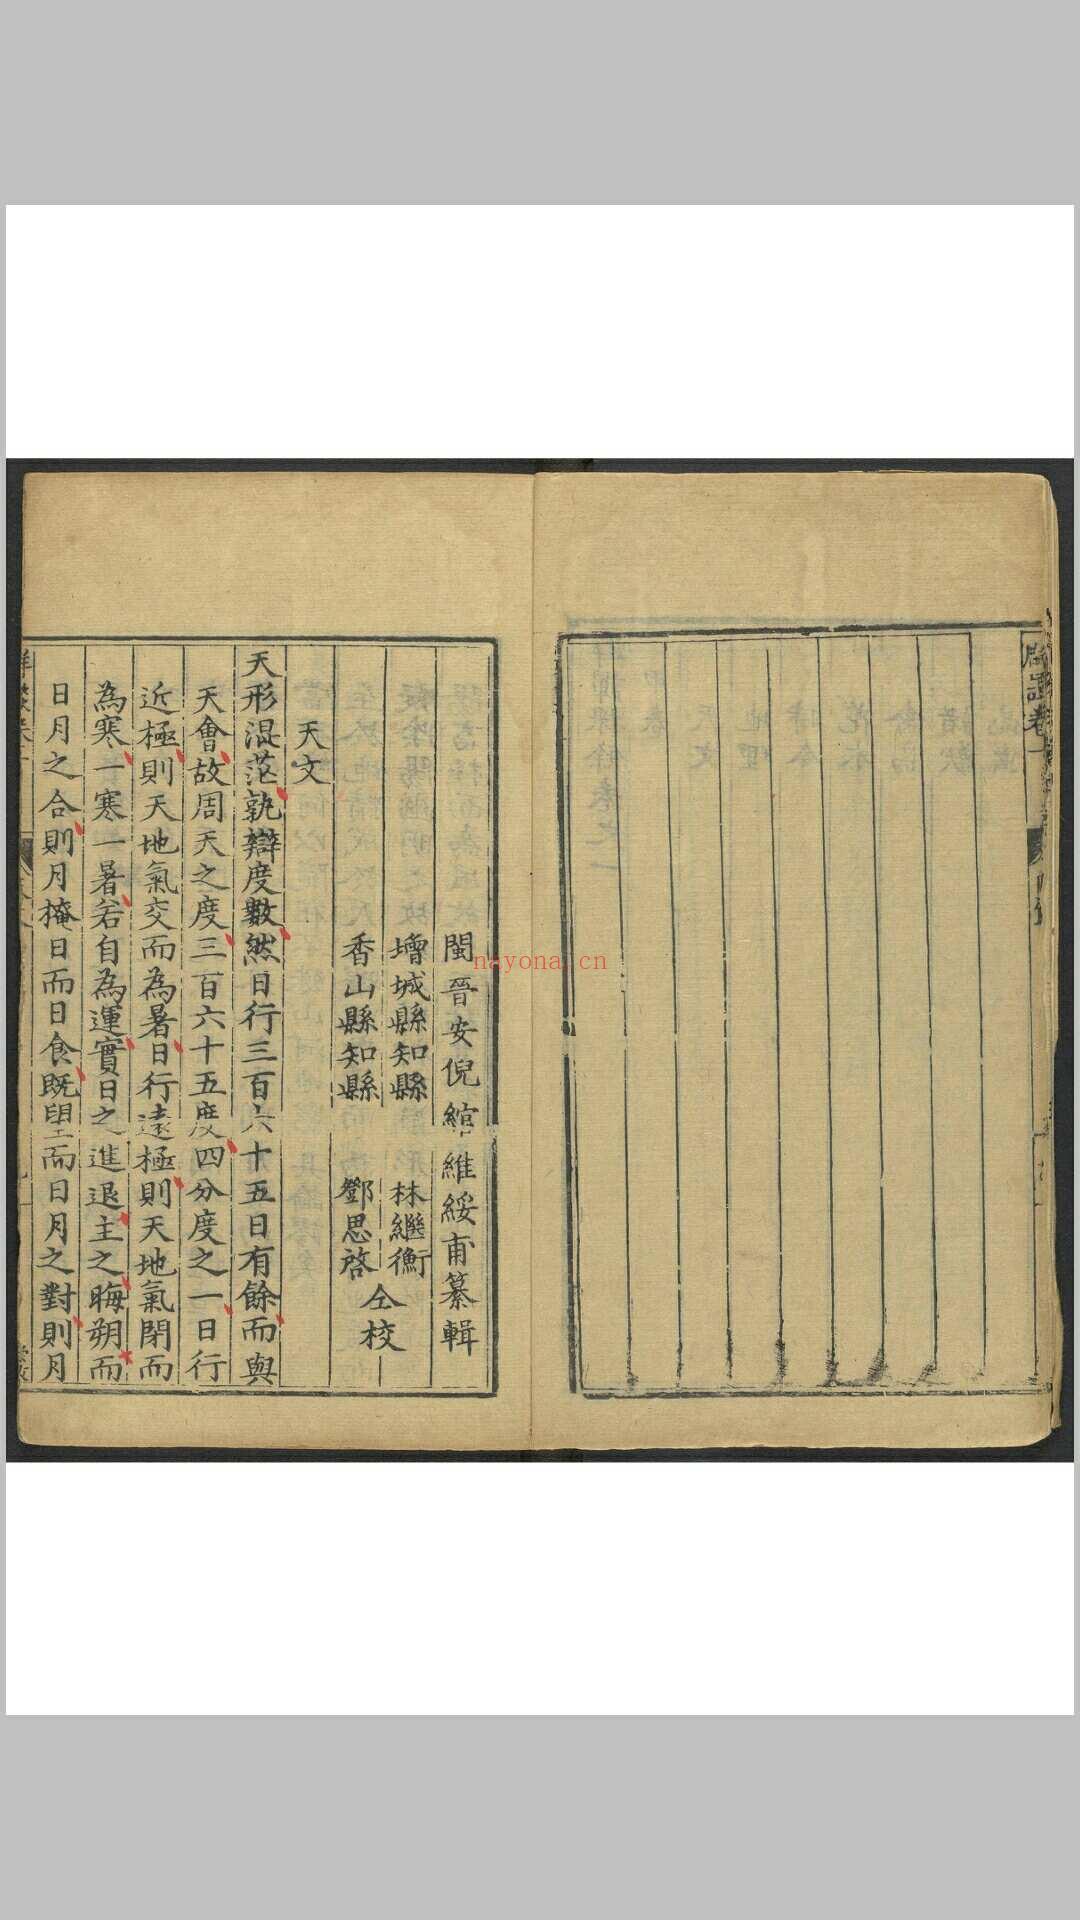 閩晉安倪綰維綏甫纂輯
增城縣知縣 林繼衡
香山縣知縣 鄧思啓
仝校
天文
天形混茫孰辯度數然日行三百六十五日有餘而與
天會故周天之度三百六十五度四分度之一日行
近極則天地氣交而為暑日行遠極則天地氣閉而
為寒一寒一暑若自為運實日之進退主之晦朔而
日月之合則月掩日而日食既望而日月之對則月
nayona.cn